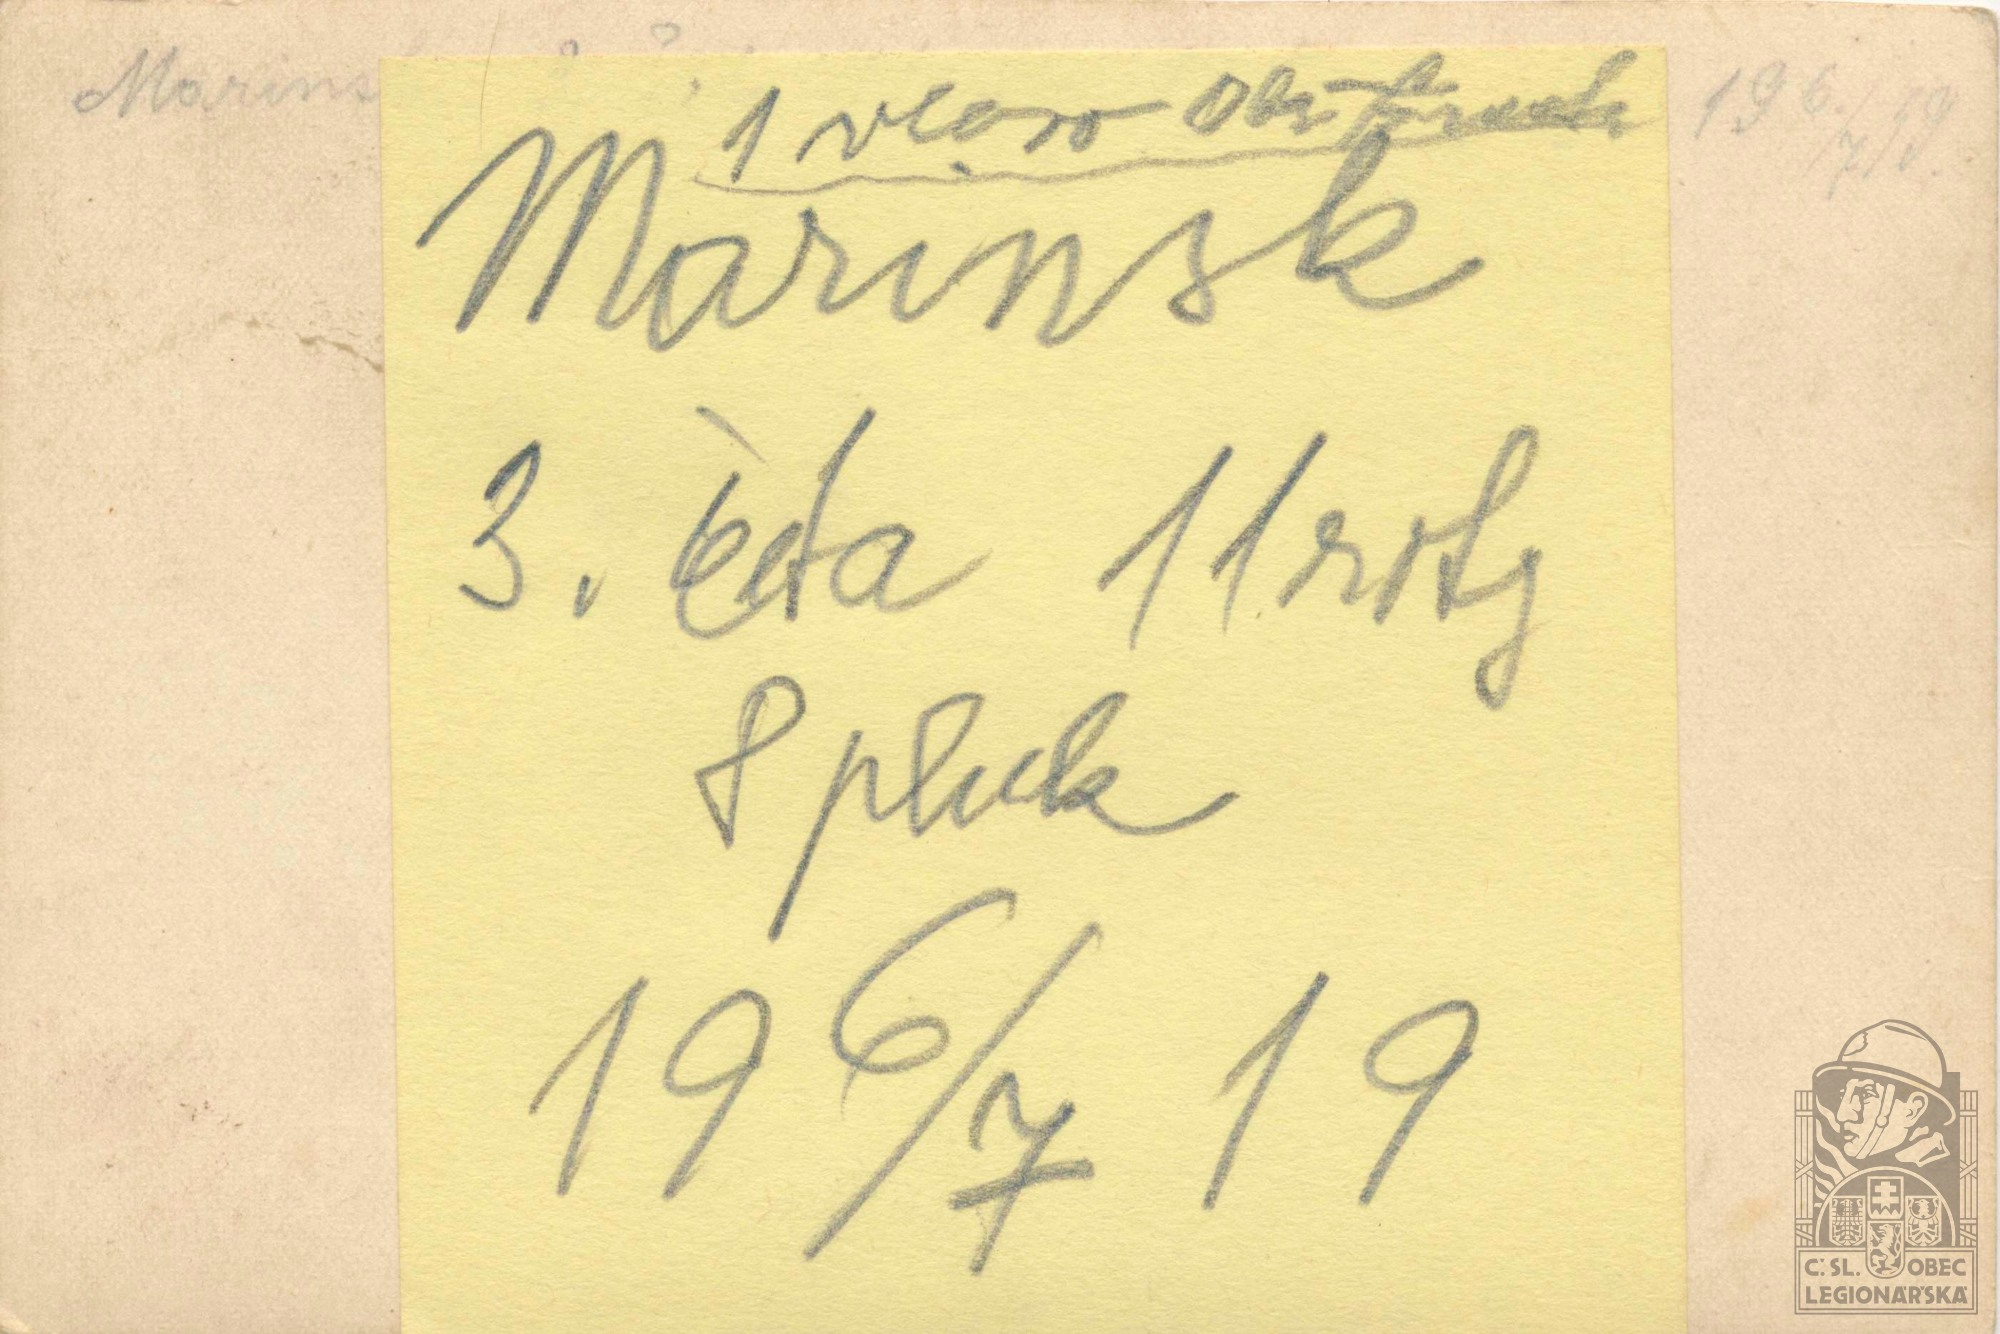 Marins
19 6/7 19.
1 vlevo
Marinsk
3. četa 11 roty
8 pluk
19 6/7 19
Č. SL. OBEC
LEGIONÁŘSKÁ